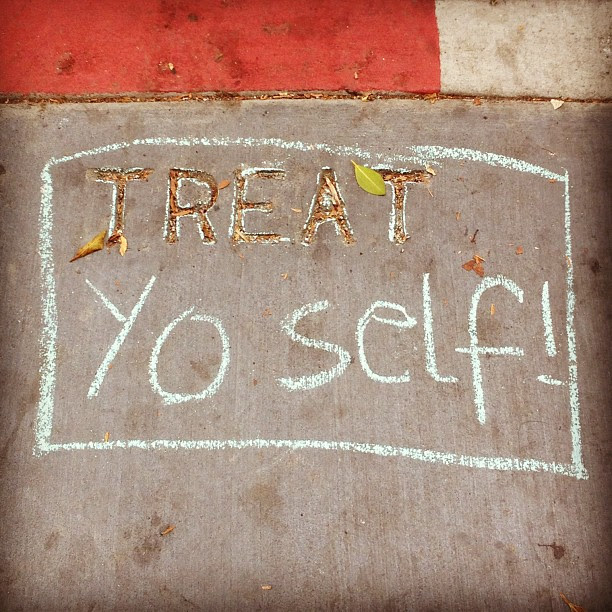 TREAT
Yo self!